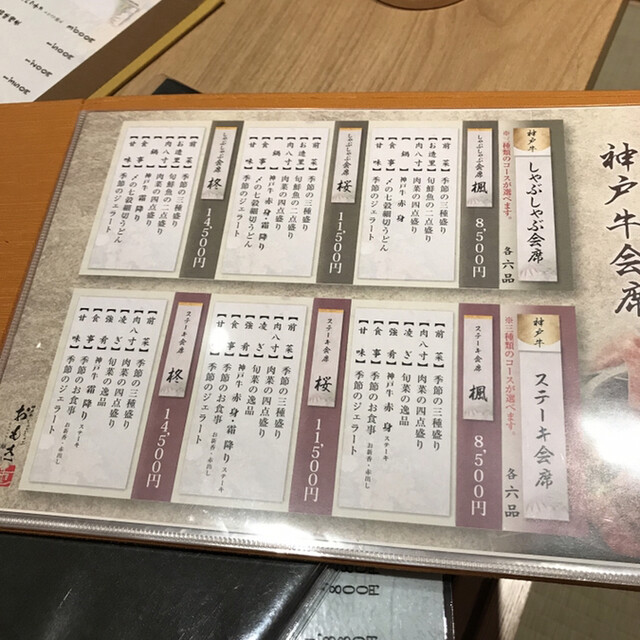 神戸牛会席
神戸牛
しゃぶしゃぶ会席
※三種類のコースが選べます。
各六品
しゃぶしゃぶ会席
楓
8,500円
【前菜】季節の三種盛り
【お造里】旬鮮魚の二点盛り
【肉八寸】肉菜の四点盛り
【鍋】神戸牛 赤身
【食事】〆の七穀細切うどん
【甘味】季節のジェラート
しゃぶしゃぶ会席
桜
11,500円
【前菜】季節の三種盛り
【お造里】旬鮮魚の二点盛り
【肉八寸】肉菜の四点盛り
【鍋】神戸牛 赤身 霜降り
【食事】〆の七穀細切うどん
【甘味】季節のジェラート
しゃぶしゃぶ会席
柊
14,500円
【前菜】季節の三種盛り
【お造里】旬鮮魚の二点盛り
【肉八寸】肉菜の四点盛り
【鍋】神戸牛 霜降り
【食事】〆の七穀細切うどん
【甘味】季節のジェラート
神戸牛
ステーキ会席
※三種類のコースが選べます。
各六品
ステーキ会席
楓
8,500円
【前菜】季節の三種盛り
【肉八寸】肉菜の四点盛り
【凌ぎ】旬菜の逸品
【強肴】神戸牛 赤身 ステーキ
【食事】季節のお食事 お新香・赤出し
【甘味】季節のジェラート
ステーキ会席
桜
11,500円
【前菜】季節の三種盛り
【肉八寸】肉菜の四点盛り
【凌ぎ】旬菜の逸品
【強肴】神戸牛 赤身 霜降り ステーキ
【食事】季節のお食事 お新香・赤出し
【甘味】季節のジェラート
ステーキ会席
柊
14,500円
【前菜】季節の三種盛り
【肉八寸】肉菜の四点盛り
【凌ぎ】旬菜の逸品
【強肴】神戸牛 霜降り ステーキ
【食事】季節のお食事 お新香・赤出し
【甘味】季節のジェラート